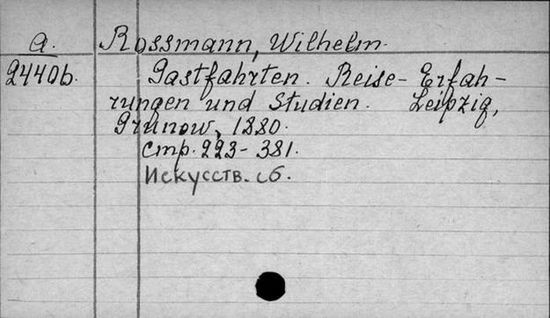 a. Rossmann, Wilhelm.
2440b. Gastfahrten. Reise-Erfah-
rungen und Studien. Leipzig,
Grunow, 1880.
Стр. 223-381.
Искусств. сб.